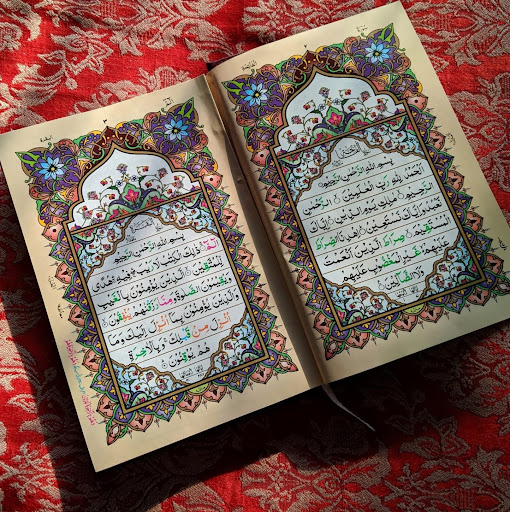 بِسْمِ اللهِ الرَّحْمٰنِ الرَّحِيْمِ
اَلْحَمْدُ لِلّٰهِ رَبِّ الْعٰلَمِيْنَ الرَّحْمٰنِ
الرَّحِيْمِ مٰلِكِ يَوْمِ الدِّيْنِ اِيَّاكَ
نَعْبُدُ وَاِيَّاكَ نَسْتَعِيْنُ اِهْدِنَا الصِّرَاطَ
الْمُسْتَقِيْمَ صِرَاطَ الَّذِيْنَ اَنْعَمْتَ
عَلَيْهِمْ غَيْرِ الْمَغْضُوْبِ عَلَيْهِمْ
وَلَا الضَّآلِّيْنَ
بِسْمِ اللهِ الرَّحْمٰنِ الرَّحِيْمِ
الٓمّٓ ذٰلِكَ الْكِتٰبُ لَا رَيْبَ فِيْهِ هُدًى
لِّلْمُتَّقِيْنَ الَّذِيْنَ يُؤْمِنُوْنَ بِالْغَيْبِ
وَيُقِيْمُوْنَ الصَّلٰوةَ وَمِمَّا رَزَقْنٰهُمْ يُنْفِقُوْنَ
وَالَّذِيْنَ يُؤْمِنُوْنَ بِمَآ اُنْزِلَ اِلَيْكَ وَمَآ
اُنْزِلَ مِنْ قَبْلِكَ وَبِالْاٰخِرَةِ
هُمْ يُوْقِنُوْنَ